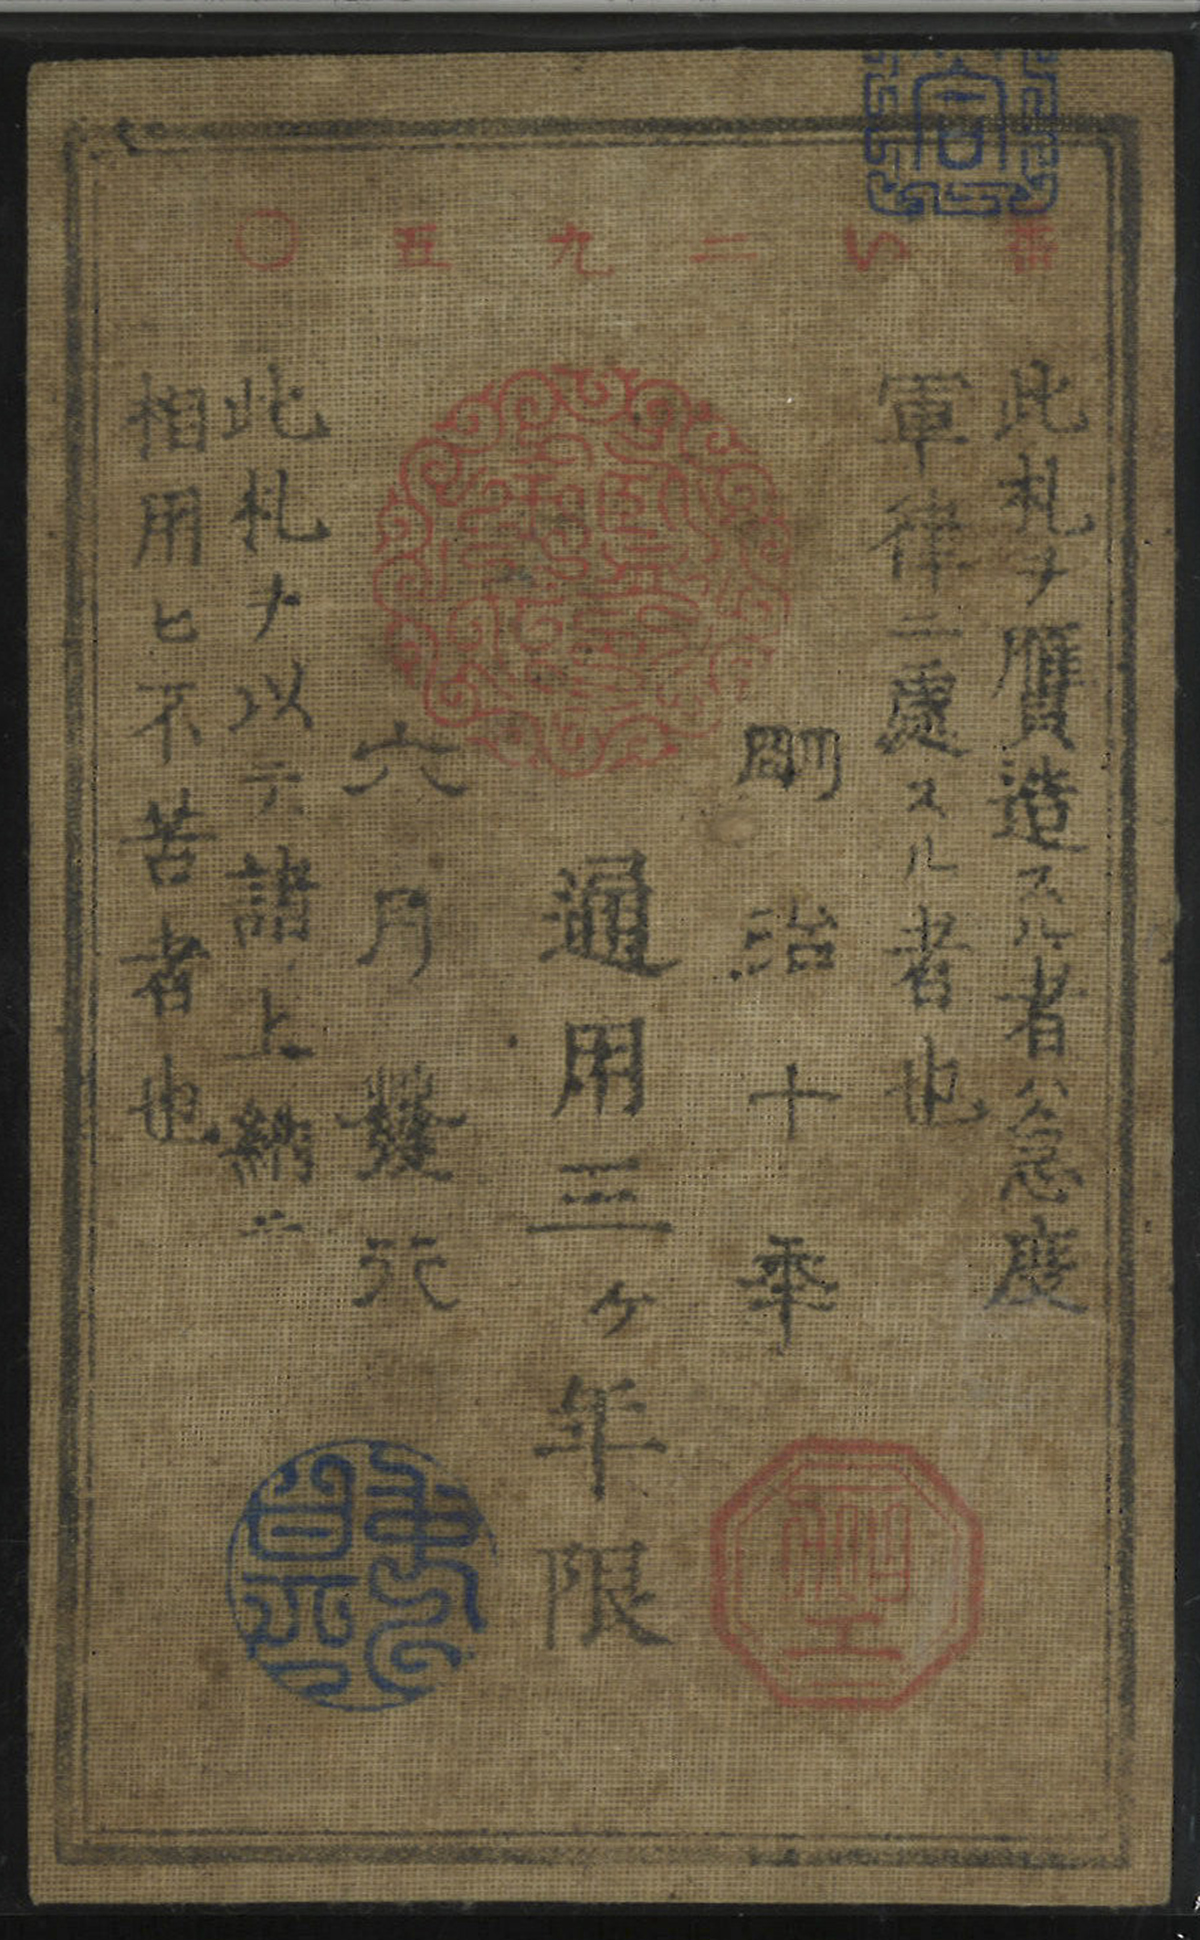 番い二九五〇
此札ヲ贋造スル者ハ急度
軍律ニ處スル者也
明治十年
通用三ヶ年限
六月發行
此札ヲ以テ諸上納ニ
相用ヒ不苦者也